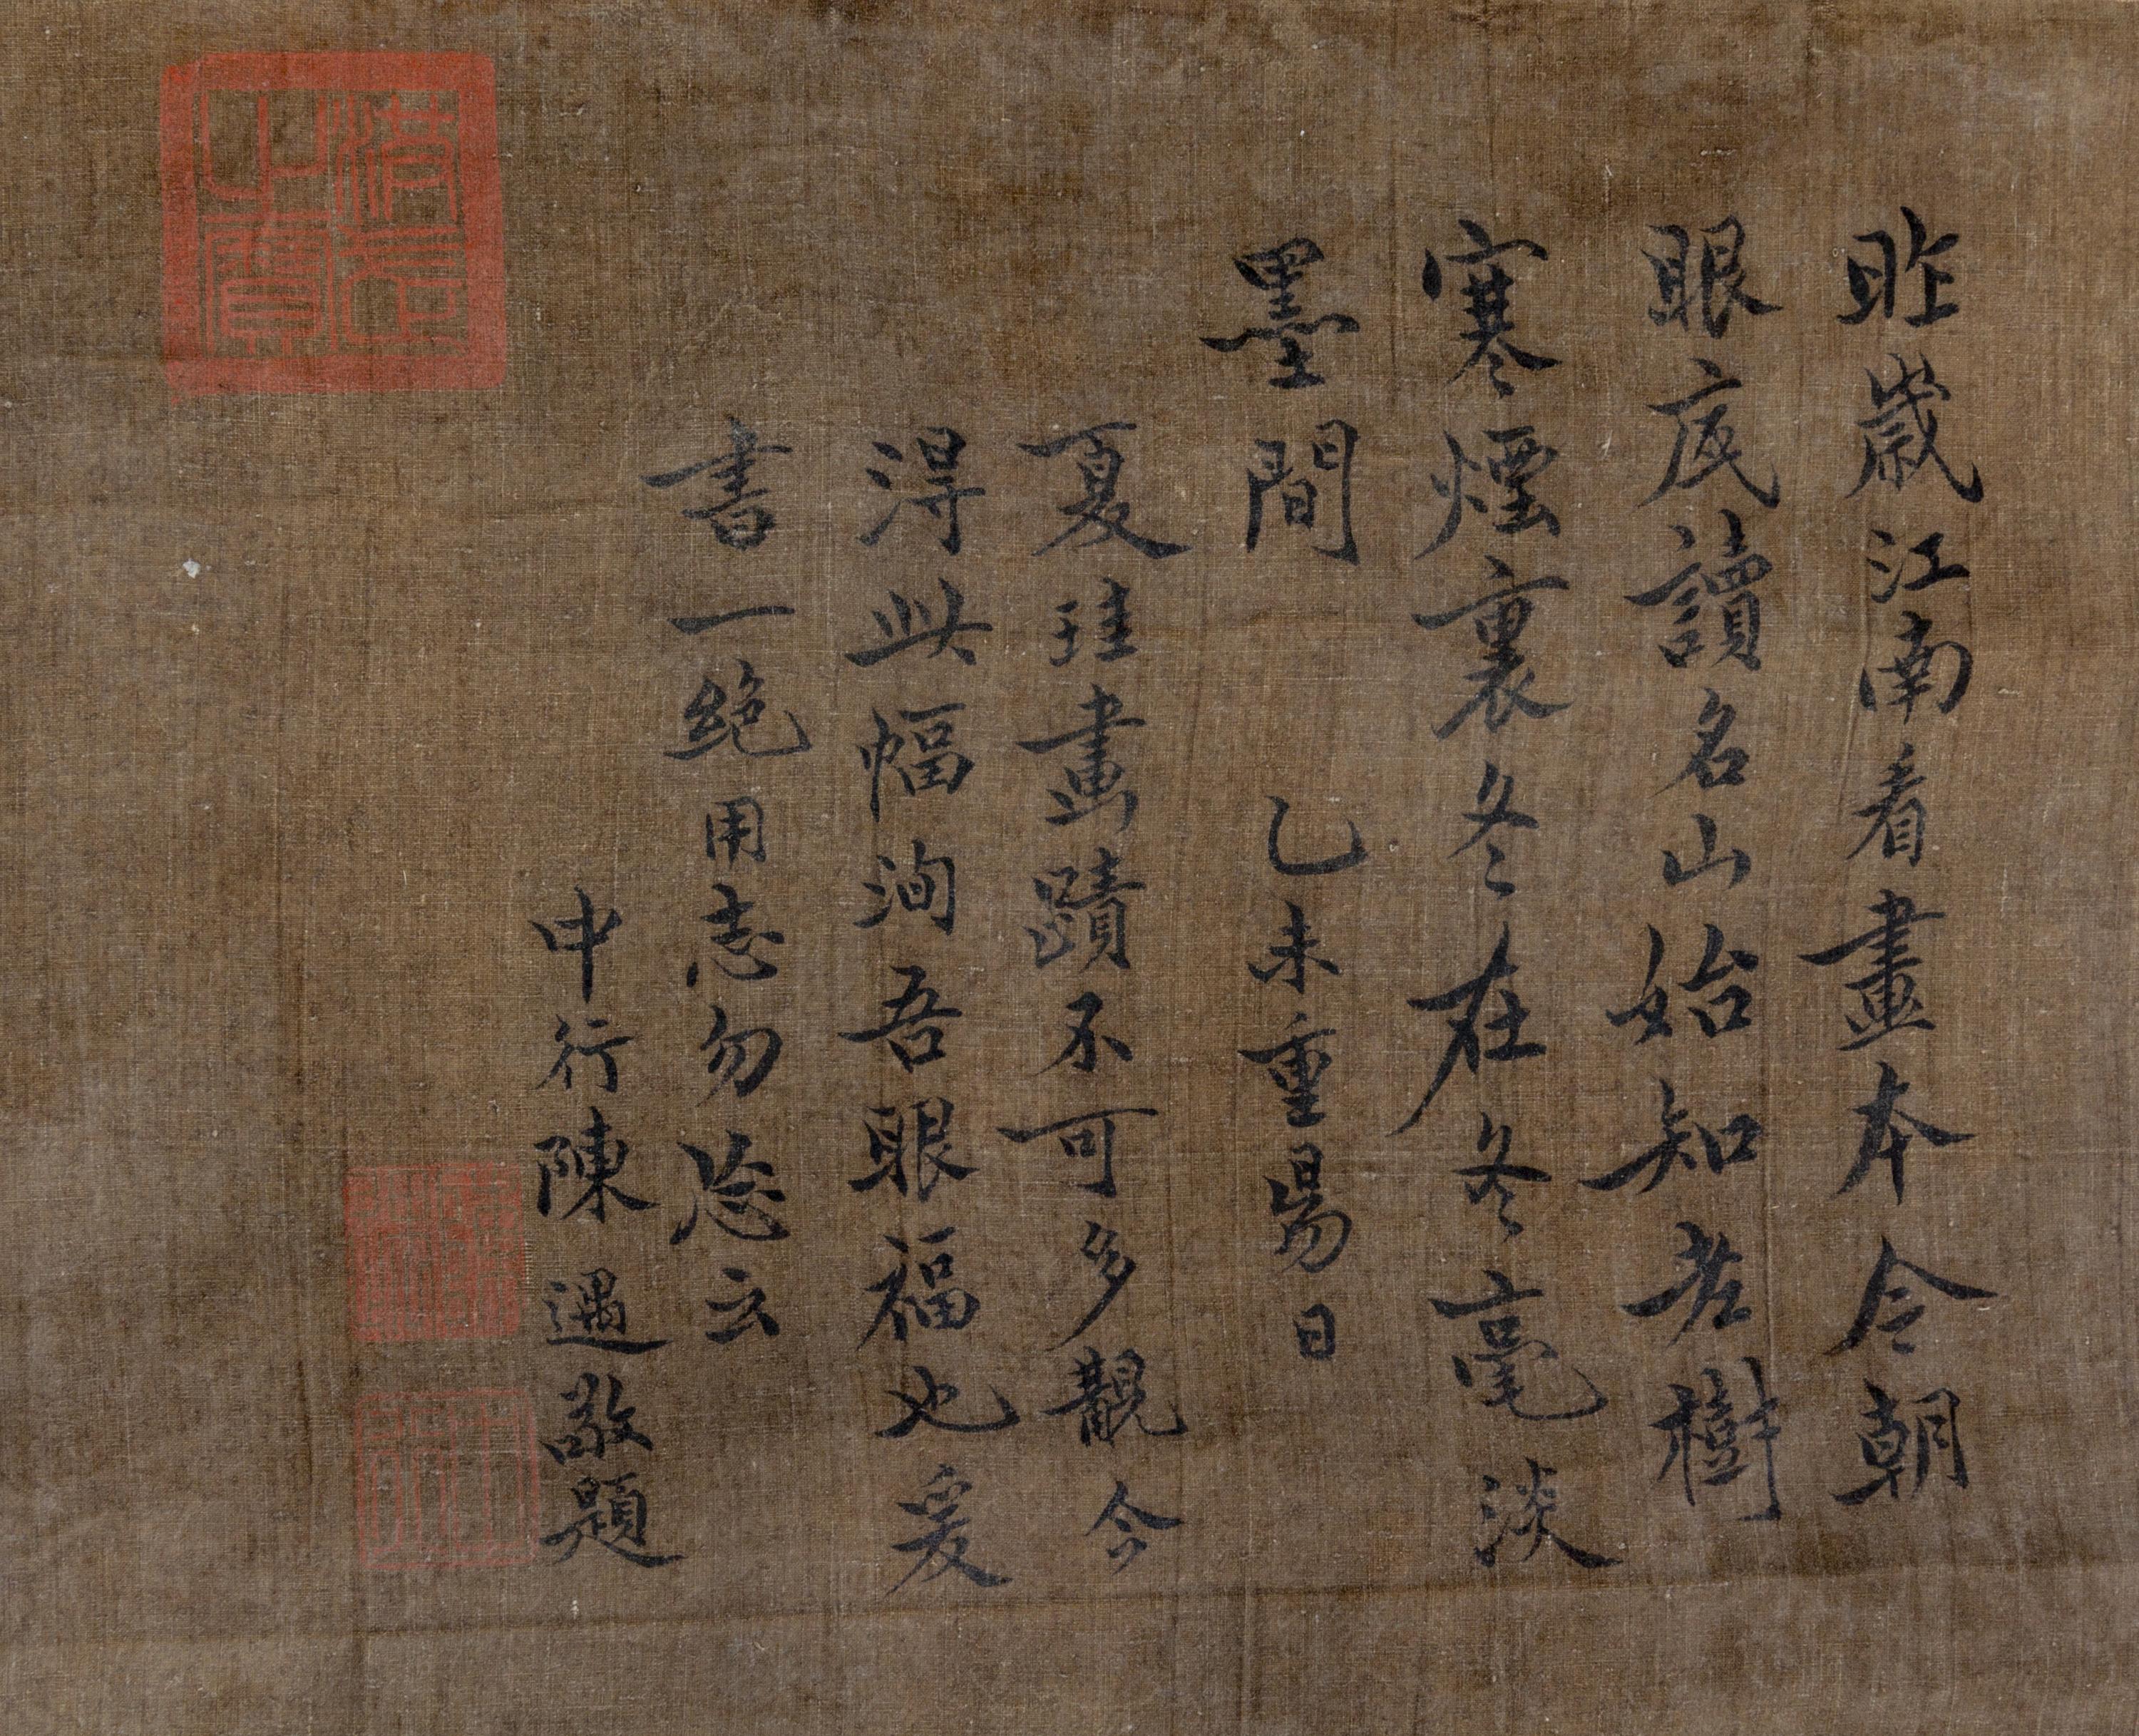 昨歲江南看畫本今朝
眼底讀名山始知老樹
寒煙裏冬在冬毫淡
墨間 乙未重昜日
夏珪畫蹟不可多觀今
得此幅洵吾眼福也爰
書一絕用志勿忩云
中行陳遇敬題
中行